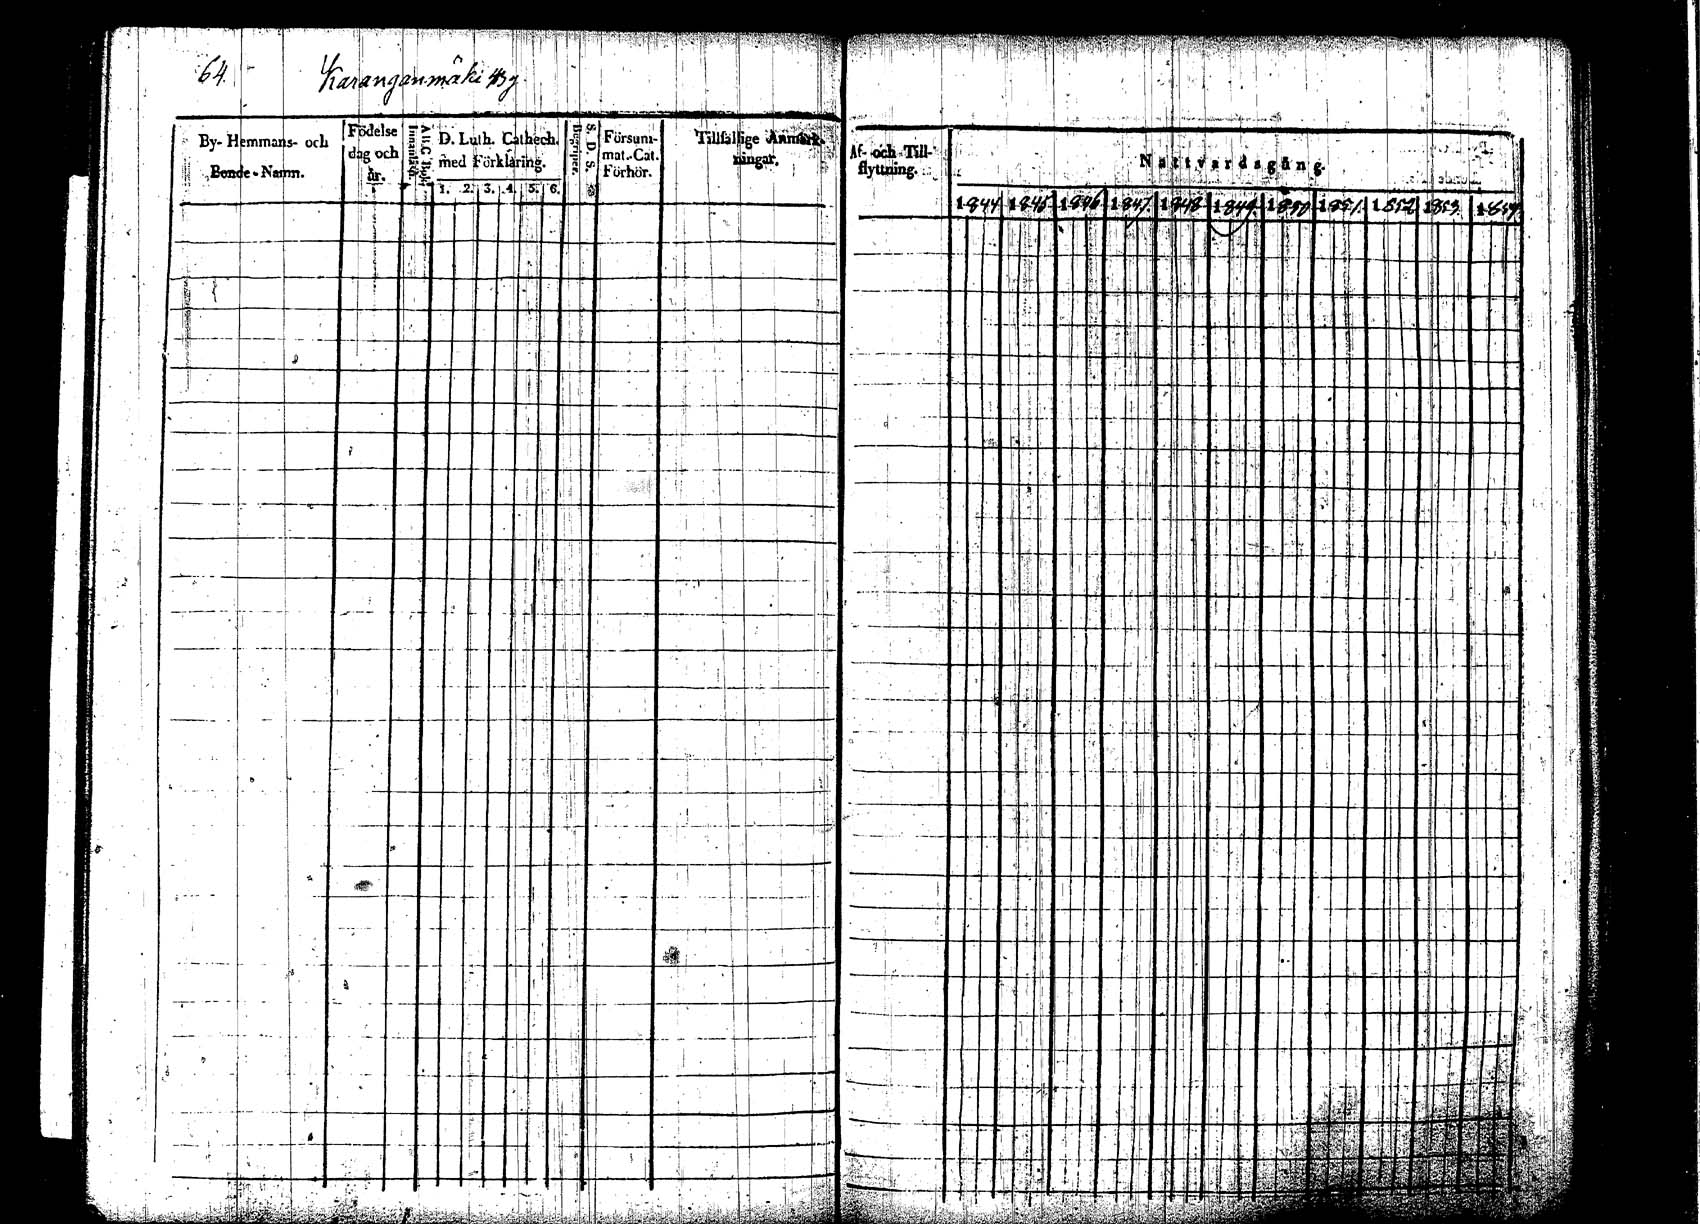 64.
Karanganmäki By
By- Hemmans- och
Bonde-Namn.
Födelse
dag och
år.
A B C Bok
Innanläsn.
D. Luth. Cathech.
med Förklaring.
1. 2. 3. 4. 5. 6.
S. D. S.
Begriper.
Försum-
mat. Cat.
Förhör.
Tillfällige Anmärk-
ningar.
Af- och Till-
flyttning.
Nattvardsgång.
1844 1845 1846 1847. 1848 1849. 1850 1851. 1852 1853. 1854